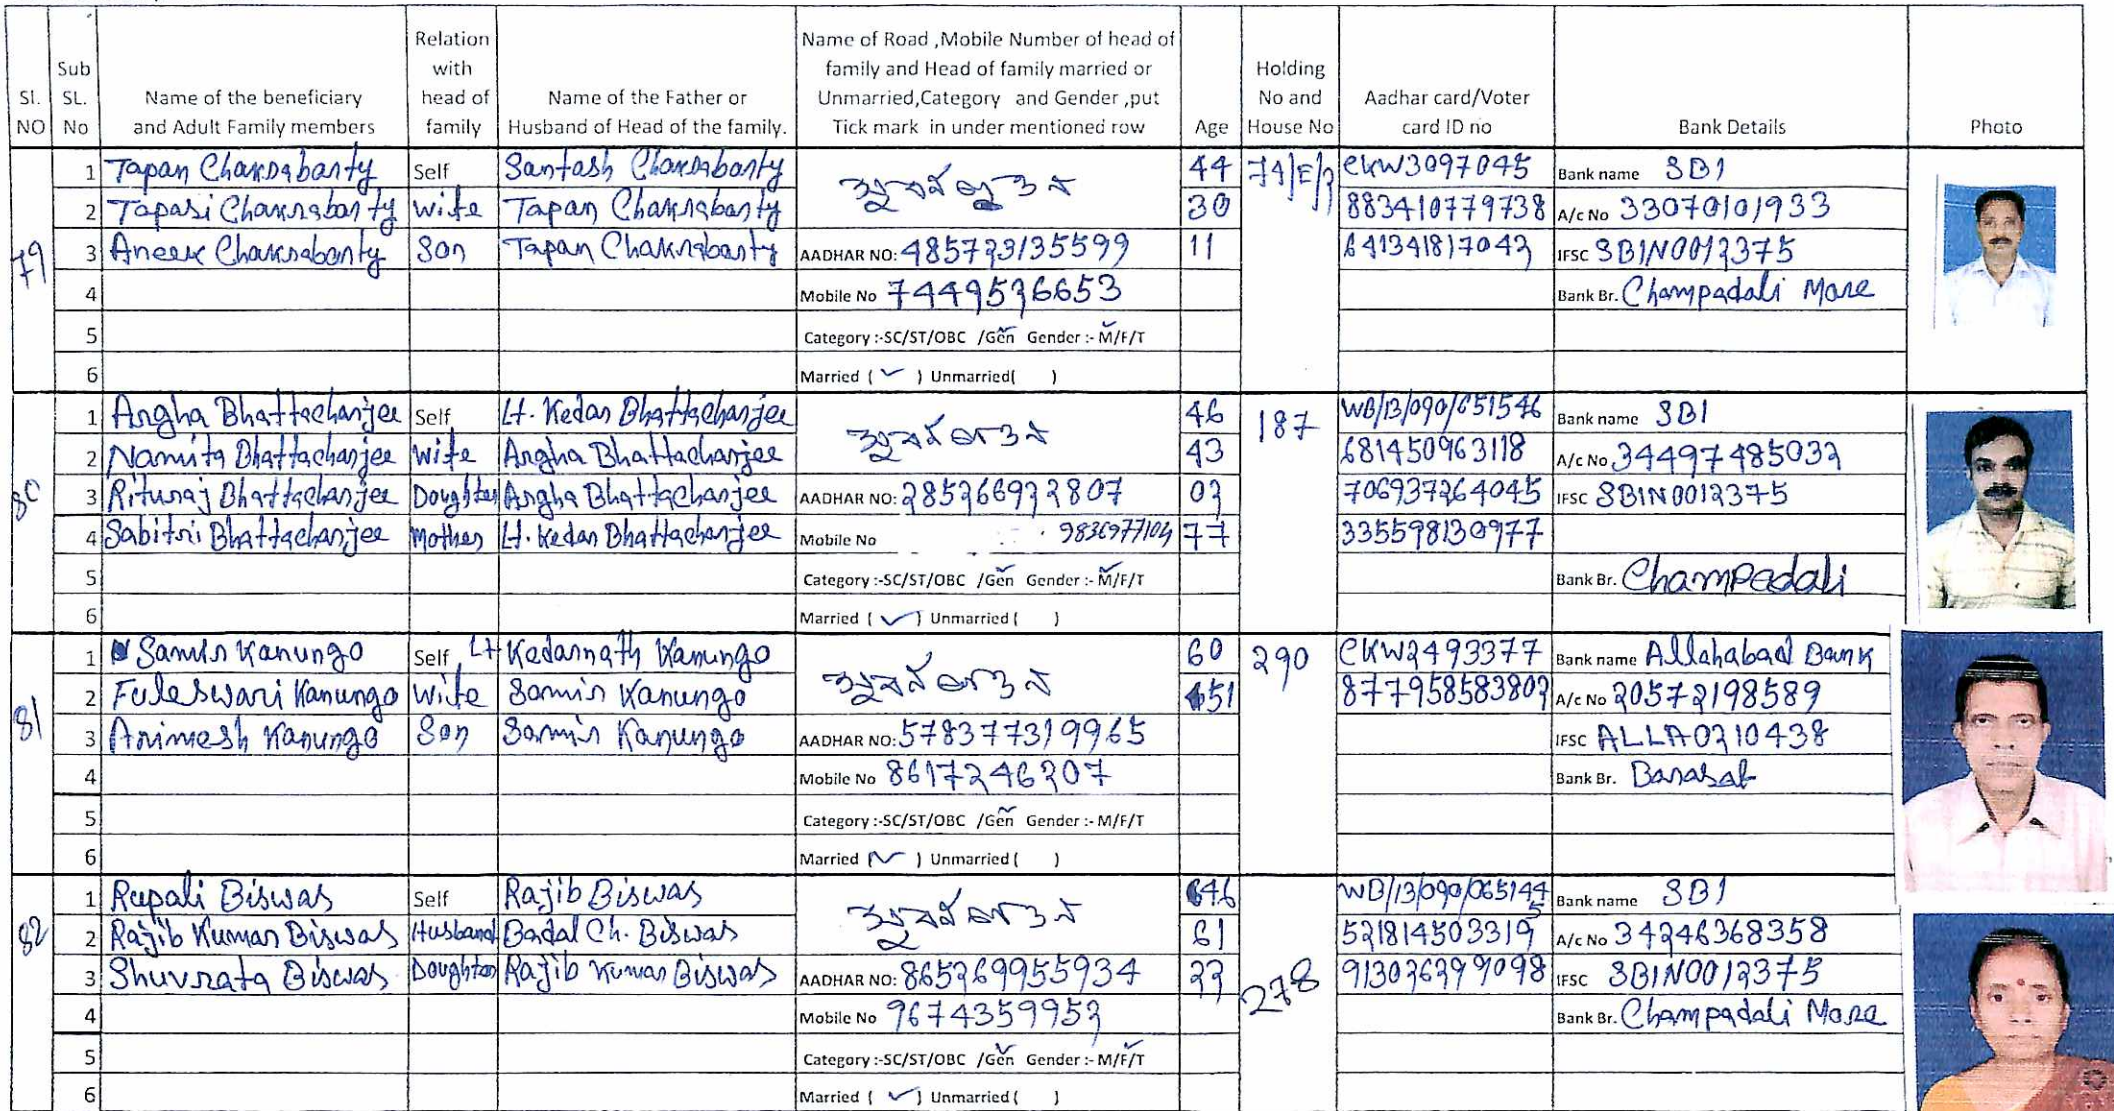 Sl. NO | Sub SL. No | Name of the beneficiary and Adult Family members | Relation with head of family | Name of the Father or Husband of Head of the family. | Name of Road ,Mobile Number of head of family and Head of family married or Unmarried,Category and Gender ,put Tick mark in under mentioned row | Age | Holding No and House No | Aadhar card/Voter card ID no | Bank Details | Photo
79
1 Tapan Chakrabarty Self Santosh Chakrabarty 44 CKW3097045 Bank name SBI
2 Tapasi Chakrabarty wife Tapan Chakrabarty 30 883410779738 A/c No 33070101933
3 Aneek Chakrabarty Son Tapan Chakrabarty AADHAR NO: 11 IFSC SBIN0012375
4 Mobile No Bank Br. Champadali More
5 Category :-SC/ST/OBC /Gen Gender :- M/F/T
6 Married ( ✓ ) Unmarried( )
80
1 Argha Bhattacharjee Self Lt. Kedar Bhattacharjee 46 187 WB/13/090/651546 Bank name SBI
2 Namita Bhattacharjee wife Argha Bhattacharjee 43 681450963118 A/c No 34497485032
3 Rituraj Bhattacharjee Doughter Argha Bhattacharjee AADHAR NO: 02 706937264045 IFSC SBIN0012375
4 Sabitri Bhattacharjee Mother Lt. Kedar Bhattacharjee Mobile No 77 335598130977
5 Category :-SC/ST/OBC /Gen Gender :- M/F/T Bank Br. Champadali
6 Married ( ✓ ) Unmarried ( )
81
1 Samir Kanungo Self Lt Kedarnath Kanungo 60 290 CKW2493377 Bank name Allahabad Bank
2 Fuleswari Kanungo wife Samir Kanungo 51 877958583802 A/c No 20572198589
3 Animesh Kanungo Son Samir Kanungo AADHAR NO: IFSC ALLA0210438
4 Mobile No 8617246207 Bank Br. Barasat
5 Category :-SC/ST/OBC /Gen Gender :- M/F/T
6 Married ( ✓ ) Unmarried ( )
82
1 Rupali Biswas Self Rajib Biswas 46 Bank name SBI
2 Rajib Kumar Biswas Husband Badal Ch. Biswas 61 521814503319 A/c No 34246368358
3 Shuvrata Biswas Doughter Rajib Kumar Biswas AADHAR NO: 865269955934 22 278 IFSC SBIN0012375
4 Mobile No 9674359952 Bank Br. Champadali More
5 Category :-SC/ST/OBC /Gen Gender :- M/F/T
6 Married ( ✓ ) Unmarried ( )